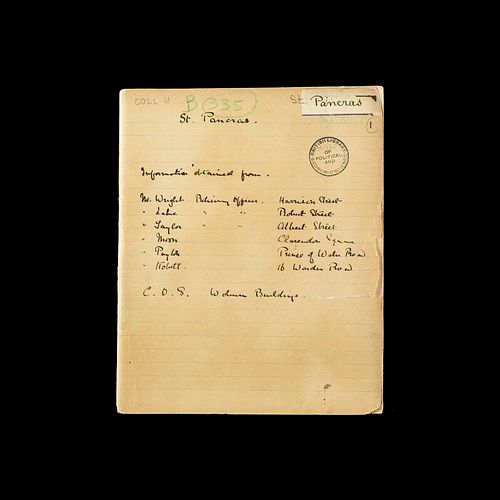 COLL U
B(335)
St. Pancras
1
St. Pancras.
BRITISH LIBRARY OF POLITICAL AND
Information obtained from.
Mr. Wright Relieving Officer. Harrison Street
" Lake " " Probert Street
" Taylor " " Albert Street
" Moon Clarendon Square
" Prince of Wales Road
" 16 Warden Road
C. O. S. Woburn Buildings.